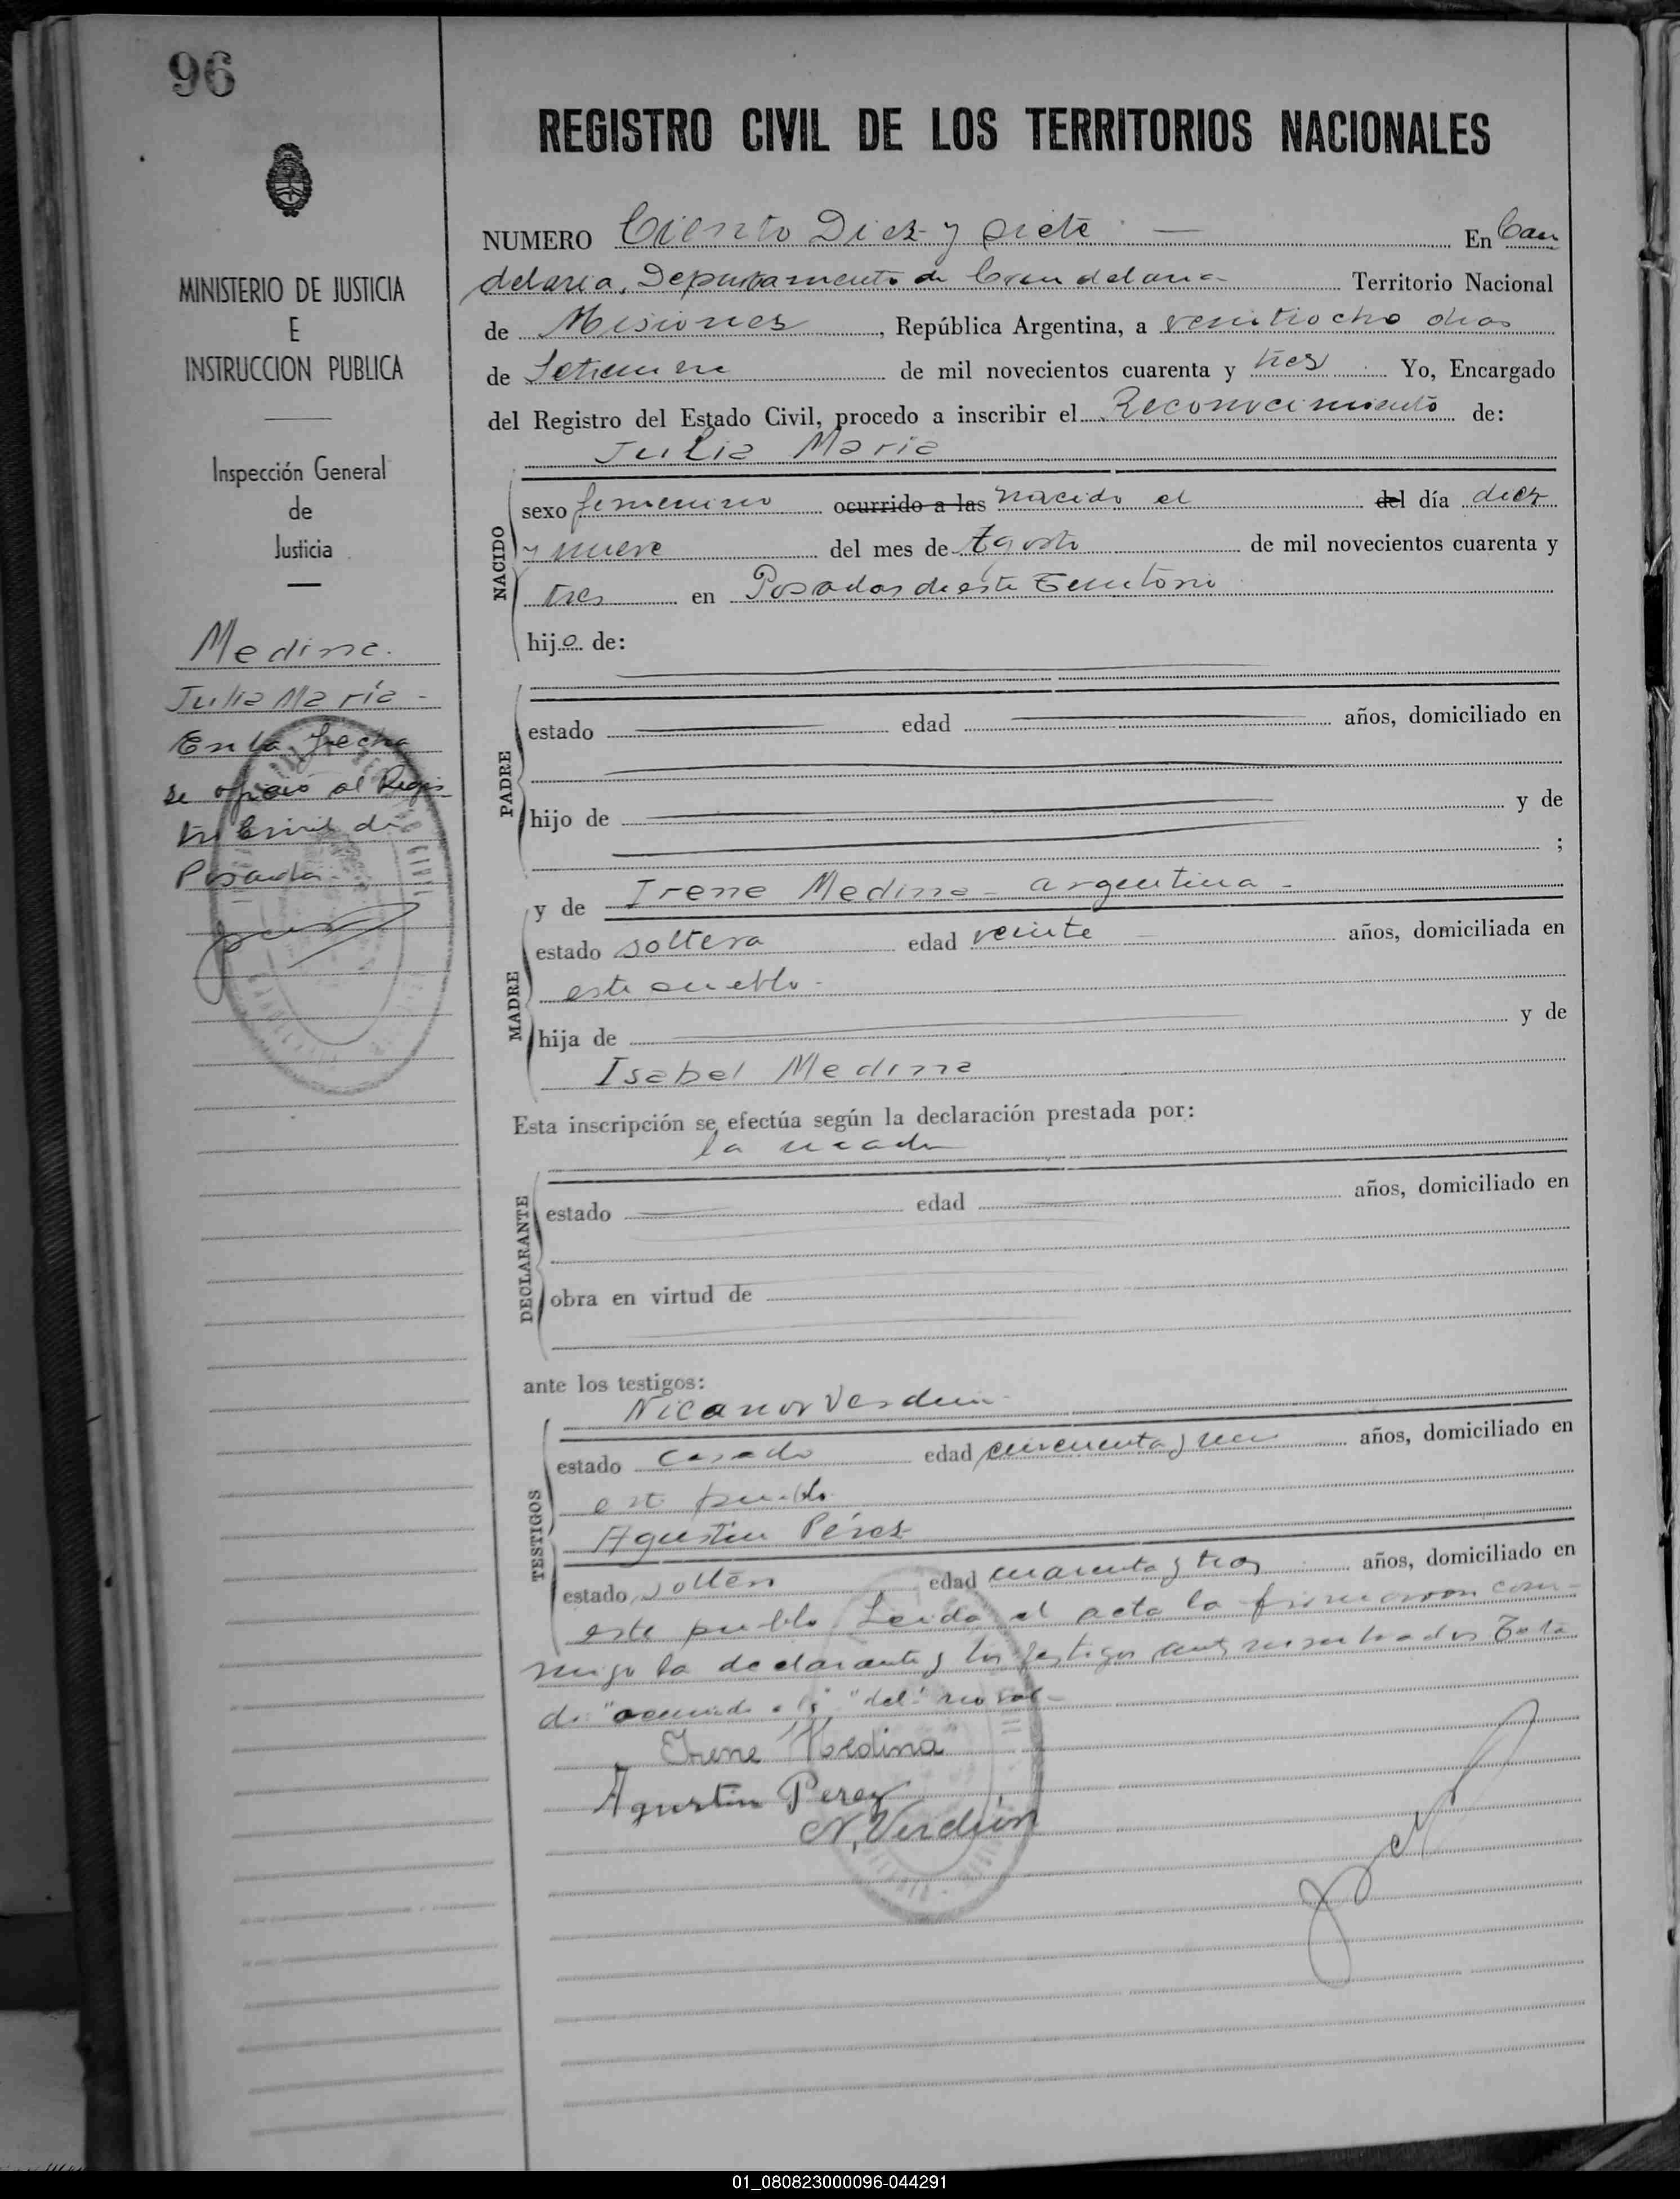 96
REGISTRO CIVIL DE LOS TERRITORIOS NACIONALES
MINISTERIO DE JUSTICIA
E
INSTRUCCION PUBLICA
Inspección General
de
Justicia
Medina.
Julia María -
En la fecha
se ofició al Regis
tro Civil de
Posadas
NUMERO Ciento Diez y siete - En Can
delaria, Departamento de Candelaria Territorio Nacional
de Misiones, República Argentina, a veintiocho dias
de Setiembre de mil novecientos cuarenta y tres Yo, Encargado
del Registro del Estado Civil, procedo a inscribir el Reconocimiento de:
Julia María
NACIDO
sexo femenino ocurrido a las nacido el del día diez
y nueve del mes de Agosto de mil novecientos cuarenta y
tres en Posadas de este Territorio
hijo de:
PADRE
estado edad años, domiciliado en
hijo de y de
;
y de Irene Medina - argentina -
MADRE
estado soltera edad veinte años, domiciliada en
este pueblo -
hija de y de
Isabel Medina
Esta inscripción se efectúa según la declaración prestada por:
la madre
DECLARANTE
estado edad años, domiciliado en
obra en virtud de
ante los testigos:
Nicanor Verdun
TESTIGOS
estado casado edad cincuenta y un años, domiciliado en
este pueblo
Agustin Pérez
estado soltero edad cuarenta y tres años, domiciliado en
este pueblo Leida el acta la firmaron con-
migo la declarante y los testigos
do: "ocurrido a las" "del" no vale-
Irene Medina
Agustin Perez
N, Verdún
01_080823000096-044291